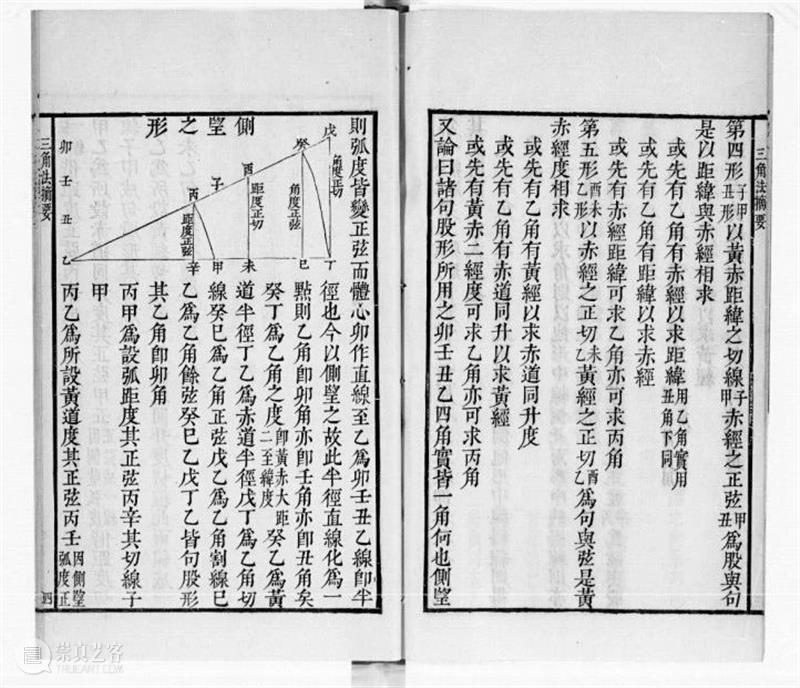 三角法摘要
第四形子甲丑形以黃赤距緯之切線子甲赤經之正弦甲丑為股與句
是以距緯與赤經相求
或先有乙角有赤經以求距緯用乙角實用丑角下同
或先有乙角有距緯以求赤經
或先有赤經距緯可求乙角亦可求丙角
第五形酉未乙形以赤經之正切未乙黃經之正切酉乙為句與弦是黃
赤經度相求
或先有乙角有黃經以求赤道同升度
或先有乙角有赤道同升以求黃經
或先有黃赤二經度可求乙角亦可求丙角
又論曰諸句股形所用之卯壬丑乙四角實皆一角何也側望
則弧度皆變正弦而體心卯作直線至乙為卯壬丑乙線卽半
徑也今以側望之故此半徑直線化為一
點則乙角卽卯角亦卽壬角亦卽丑角矣
癸丁為乙角之度卽黃赤大距二至緯度癸乙為黃
道半徑丁乙為赤道半徑戊丁為乙角切
線癸巳為乙角正弦戊乙為乙角割線巳
乙為乙角餘弦癸巳乙戊丁乙皆句股形
其乙角卽卯角
丙甲為設弧距度其正弦丙辛其切線子
甲
丙乙為所設黃道度其正弦丙壬因側望弧度正
側望之形
戊
角度正切
丁
癸
角度正弦
巳
酉
距度正切
未
子
甲
丙
距度正弦
辛
卯壬丑乙
三角法摘要
四
崇真艺客
TRUEART.COM